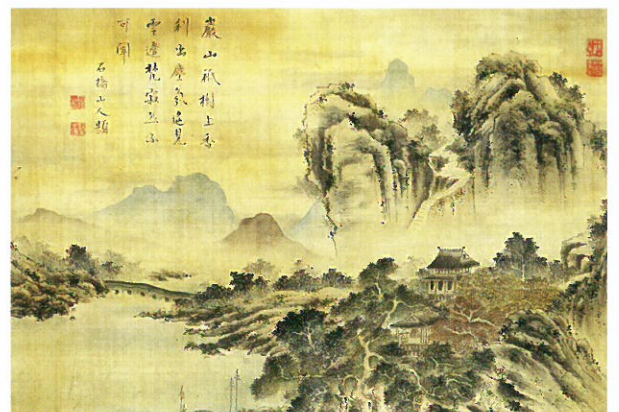 巖山祇樹上香
刹出塵氛遙見
雲邊梵寂然不
可聞
石橋山人題